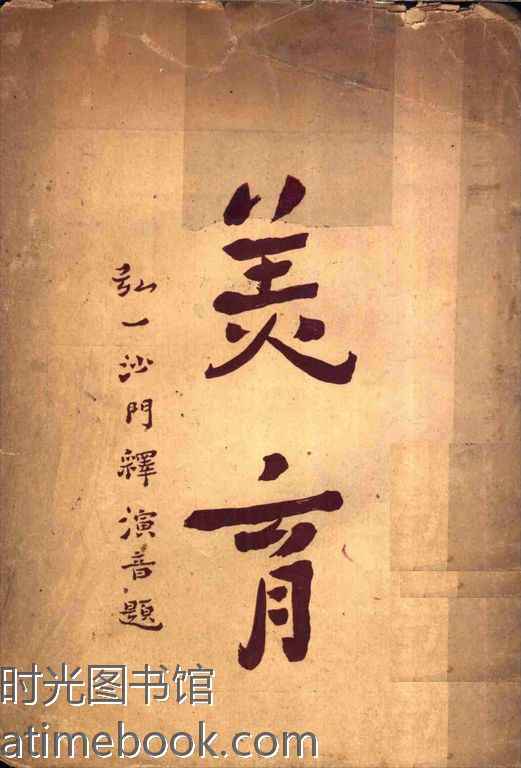 美育
弘一沙門釋演音題
时光图书馆
atimebook.com